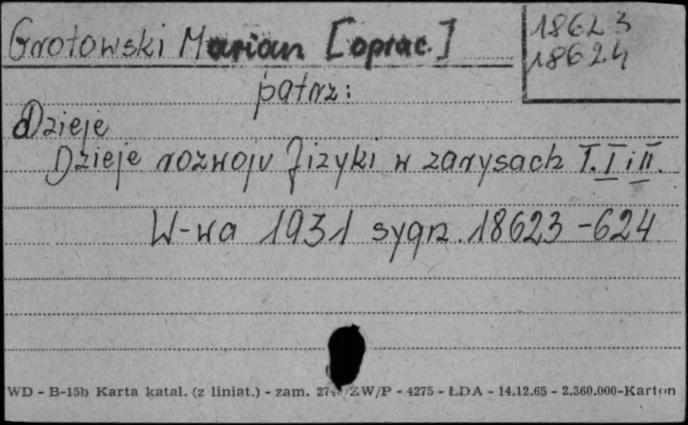 Grotowski Marian [oprac.]
18623
18624
patrz:
Dzieje
Dzieje rozwoju fizyki w zarysach T. I i II.
W-wa 1931 sygn. 18623-624
WD - B-15b Karta katal. (z liniat.) - zam. ZW/P - 4275 - ŁDA - 14.12.65 - 2.360.000-Karton